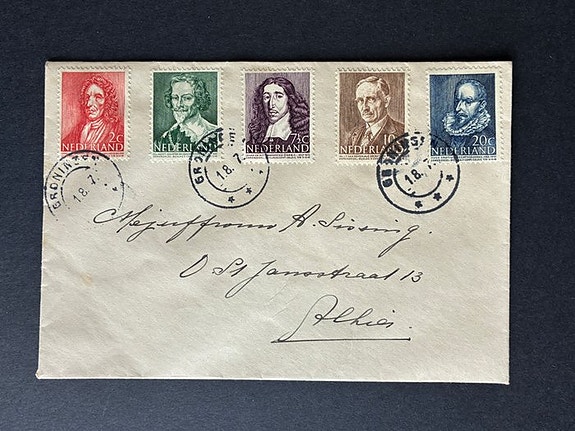 2c
NEDERLAND
NEDERLAND
7½c
NEDERLAND
10
NEDERLAND
20c
NEDERLAND
GRONINGEN
18.7
18.7
18.7
Mejuffrouw A. Sissing.
O St Jansstraat 13
Alhier.